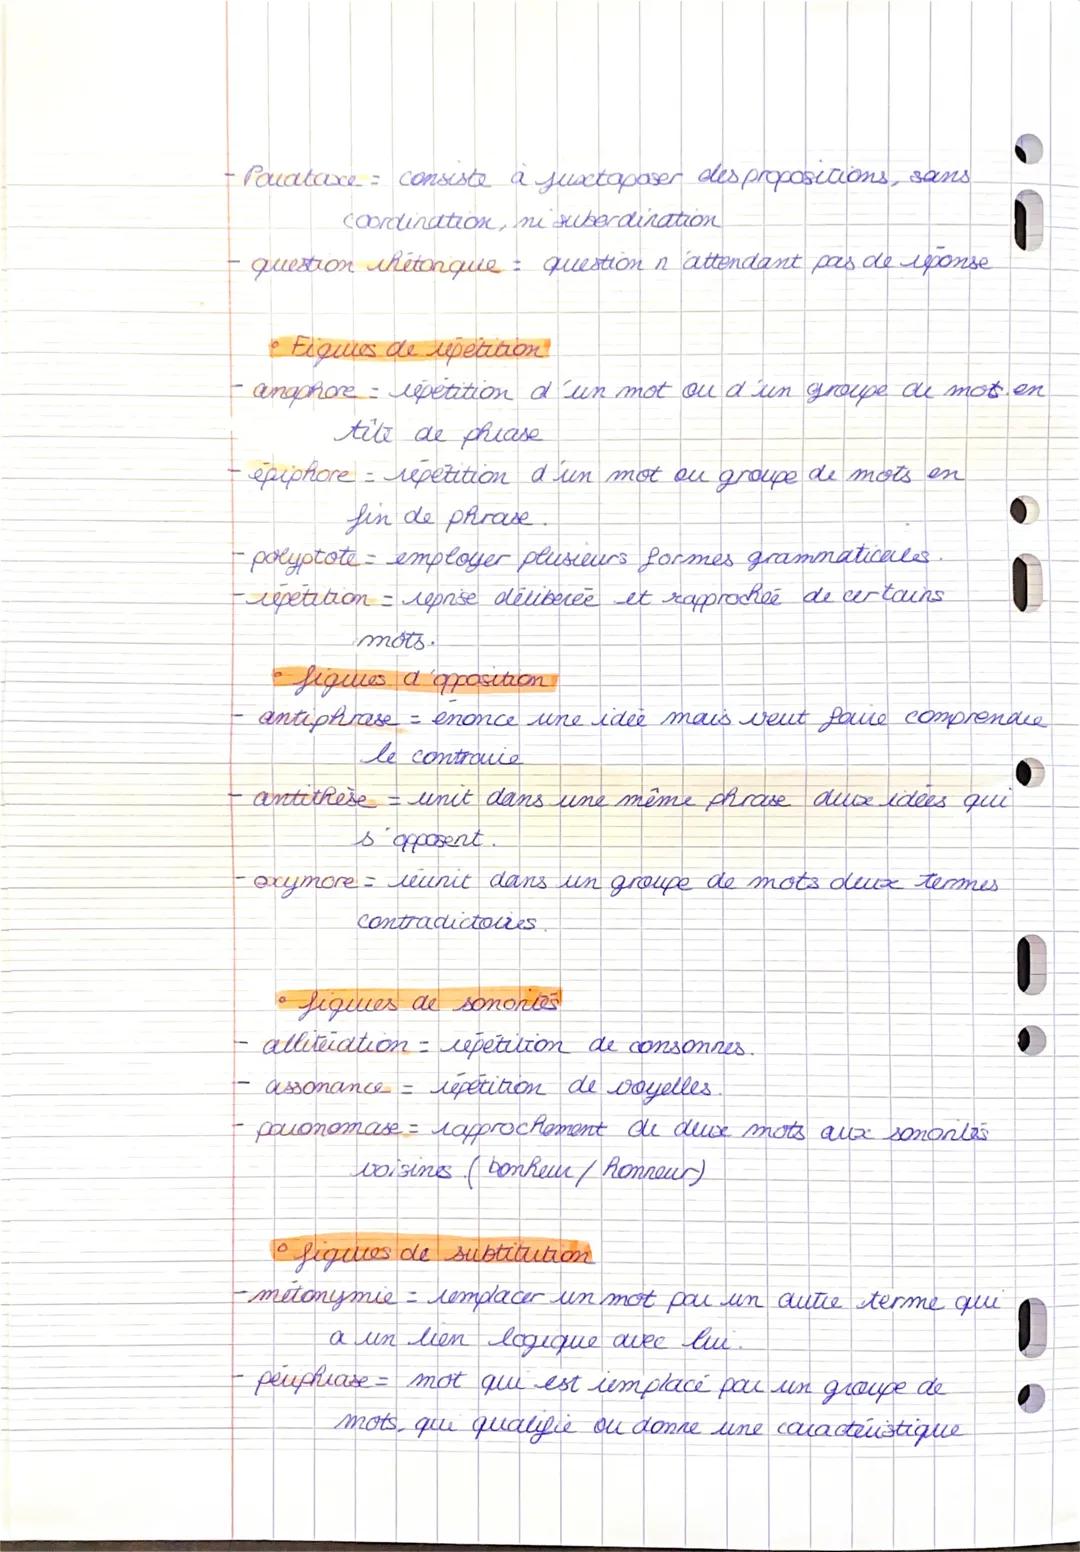 - Parataxe = consiste à juxtaposer des propositions, sans
coordination, ni subordination
- question rhétorique = question n'attendant pas de réponse
• Figures de répétition
- anaphore = répétition d'un mot ou d'un groupe de mots en
tête de phrase
- épiphore = répétition d'un mot ou groupe de mots en
fin de phrase.
- polyptote = employer plusieurs formes grammaticales.
- répétition = reprise délibérée et rapprochée de certains
mots.
• figures d'opposition
- antiphrase = énonce une idée mais veut faire comprendre
le contraire
- antithèse = unit dans une même phrase deux idées qui
s'opposent.
- oxymore = réunit dans un groupe de mots deux termes
contradictoires.
• figures de sonorités
- allitération = répétition de consonnes.
- assonance = répétition de voyelles.
- paronomase = rapprochement de deux mots aux sonorités
voisines. (bonheur / honneur)
• figures de substitution
- métonymie = remplacer un mot par un autre terme qui
a un lien logique avec lui.
- périphrase = mot qui est remplacé par un groupe de
mots, qui qualifie ou donne une caractéristique